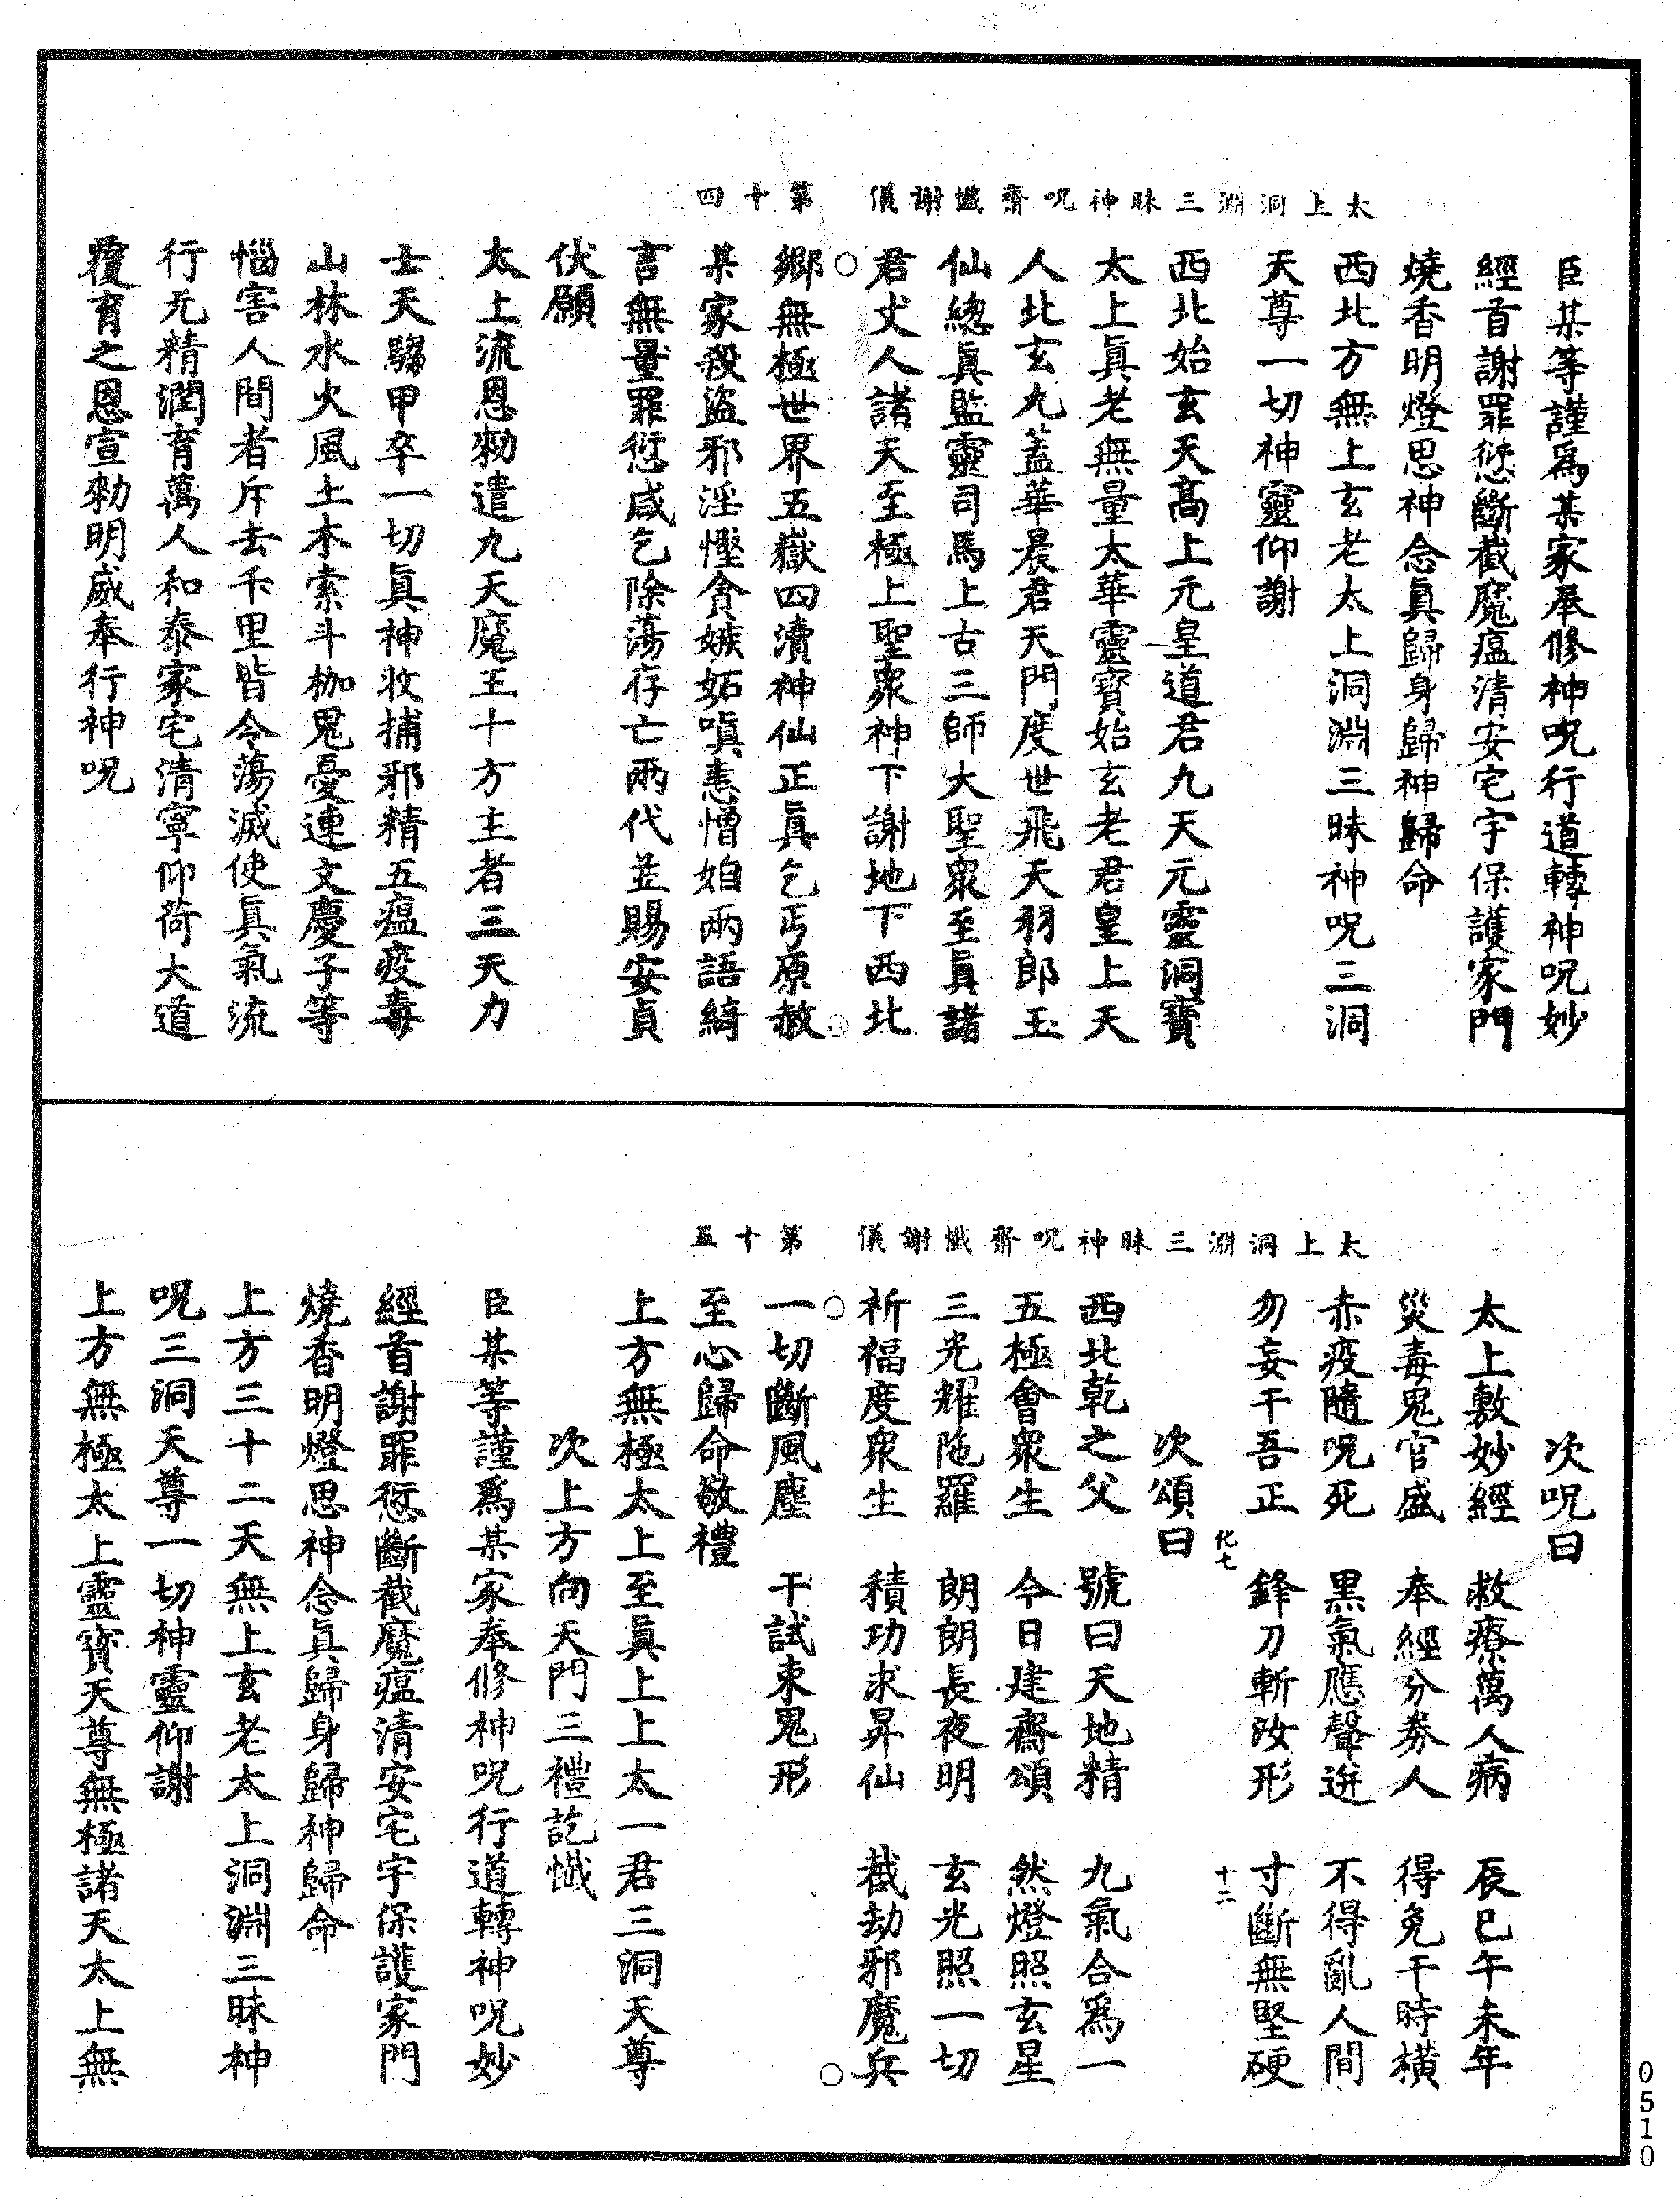 太上洞淵三昧神呪齋懺謝儀　第十四
臣某等謹爲某家奉修神呪行道轉神呪妙
經首謝罪愆斷截魔瘟清安宅宇保護家門
燒香明燈思神念眞歸身歸神歸命
西北方無上玄老太上洞淵三昧神呪三洞
天尊一切神靈仰謝
西北始玄天高上元皇道君九天元靈洞寶
太上眞老無量太華靈寶始玄老君皇上天
人北玄九蓋華晨君天門度世飛天羽郎玉
仙總眞監靈司馬上古三師大聖衆至眞諸
君丈人諸天至極上聖衆神下謝地下西北
鄉無極世界五嶽四瀆神仙正眞乞丐原赦
某家殺盜邪淫慳貪嫉妬嗔恚憎妲兩語綺
言無量罪愆咸乞除蕩存亡兩代並賜安貞
伏願
太上流恩勑遣九天魔王十方主者三天力
士天騶甲卒一切眞神收捕邪精五瘟疫毒
山林水火風土木索斗枷鬼憂連文慶子等
惱害人間者斥去千里皆令蕩滅使眞氣流
行元精潤育萬人和泰家宅清寧仰荷大道
覆育之恩宣勑明威奉行神呪
太上洞淵三昧神呪齋懺謝儀　第十五
次呪曰
太上敷妙經　救療萬人病　辰巳午未年
災毒鬼官盛　奉經分券人　得免干時橫
赤疫隨呪死　黑氣應聲迸　不得亂人間
勿妄干吾正　鋒刀斬汝形　寸斷無堅硬
化七　十二
次頌曰
西北乾之父　號曰天地精　九氣合爲一
五極會衆生　今日建齋頌　然燈照玄星
三光耀陁羅　朗朗長夜明　玄光照一切
祈福度衆生　積功求昇仙　截劫邪魔兵
一切斷風塵　干試束鬼形
至心歸命敬禮
上方無極太上至眞上上太一君三洞天尊
次上方向天門三禮訖懺
臣某等謹爲某家奉修神呪行道轉神呪妙
經首謝罪愆斷截魔瘟清安宅宇保護家門
燒香明燈思神念眞歸身歸神歸命
上方三十二天無上玄老太上洞淵三昧神
呪三洞天尊一切神靈仰謝
上方無極太上靈寶天尊無極諸天太上無
0510